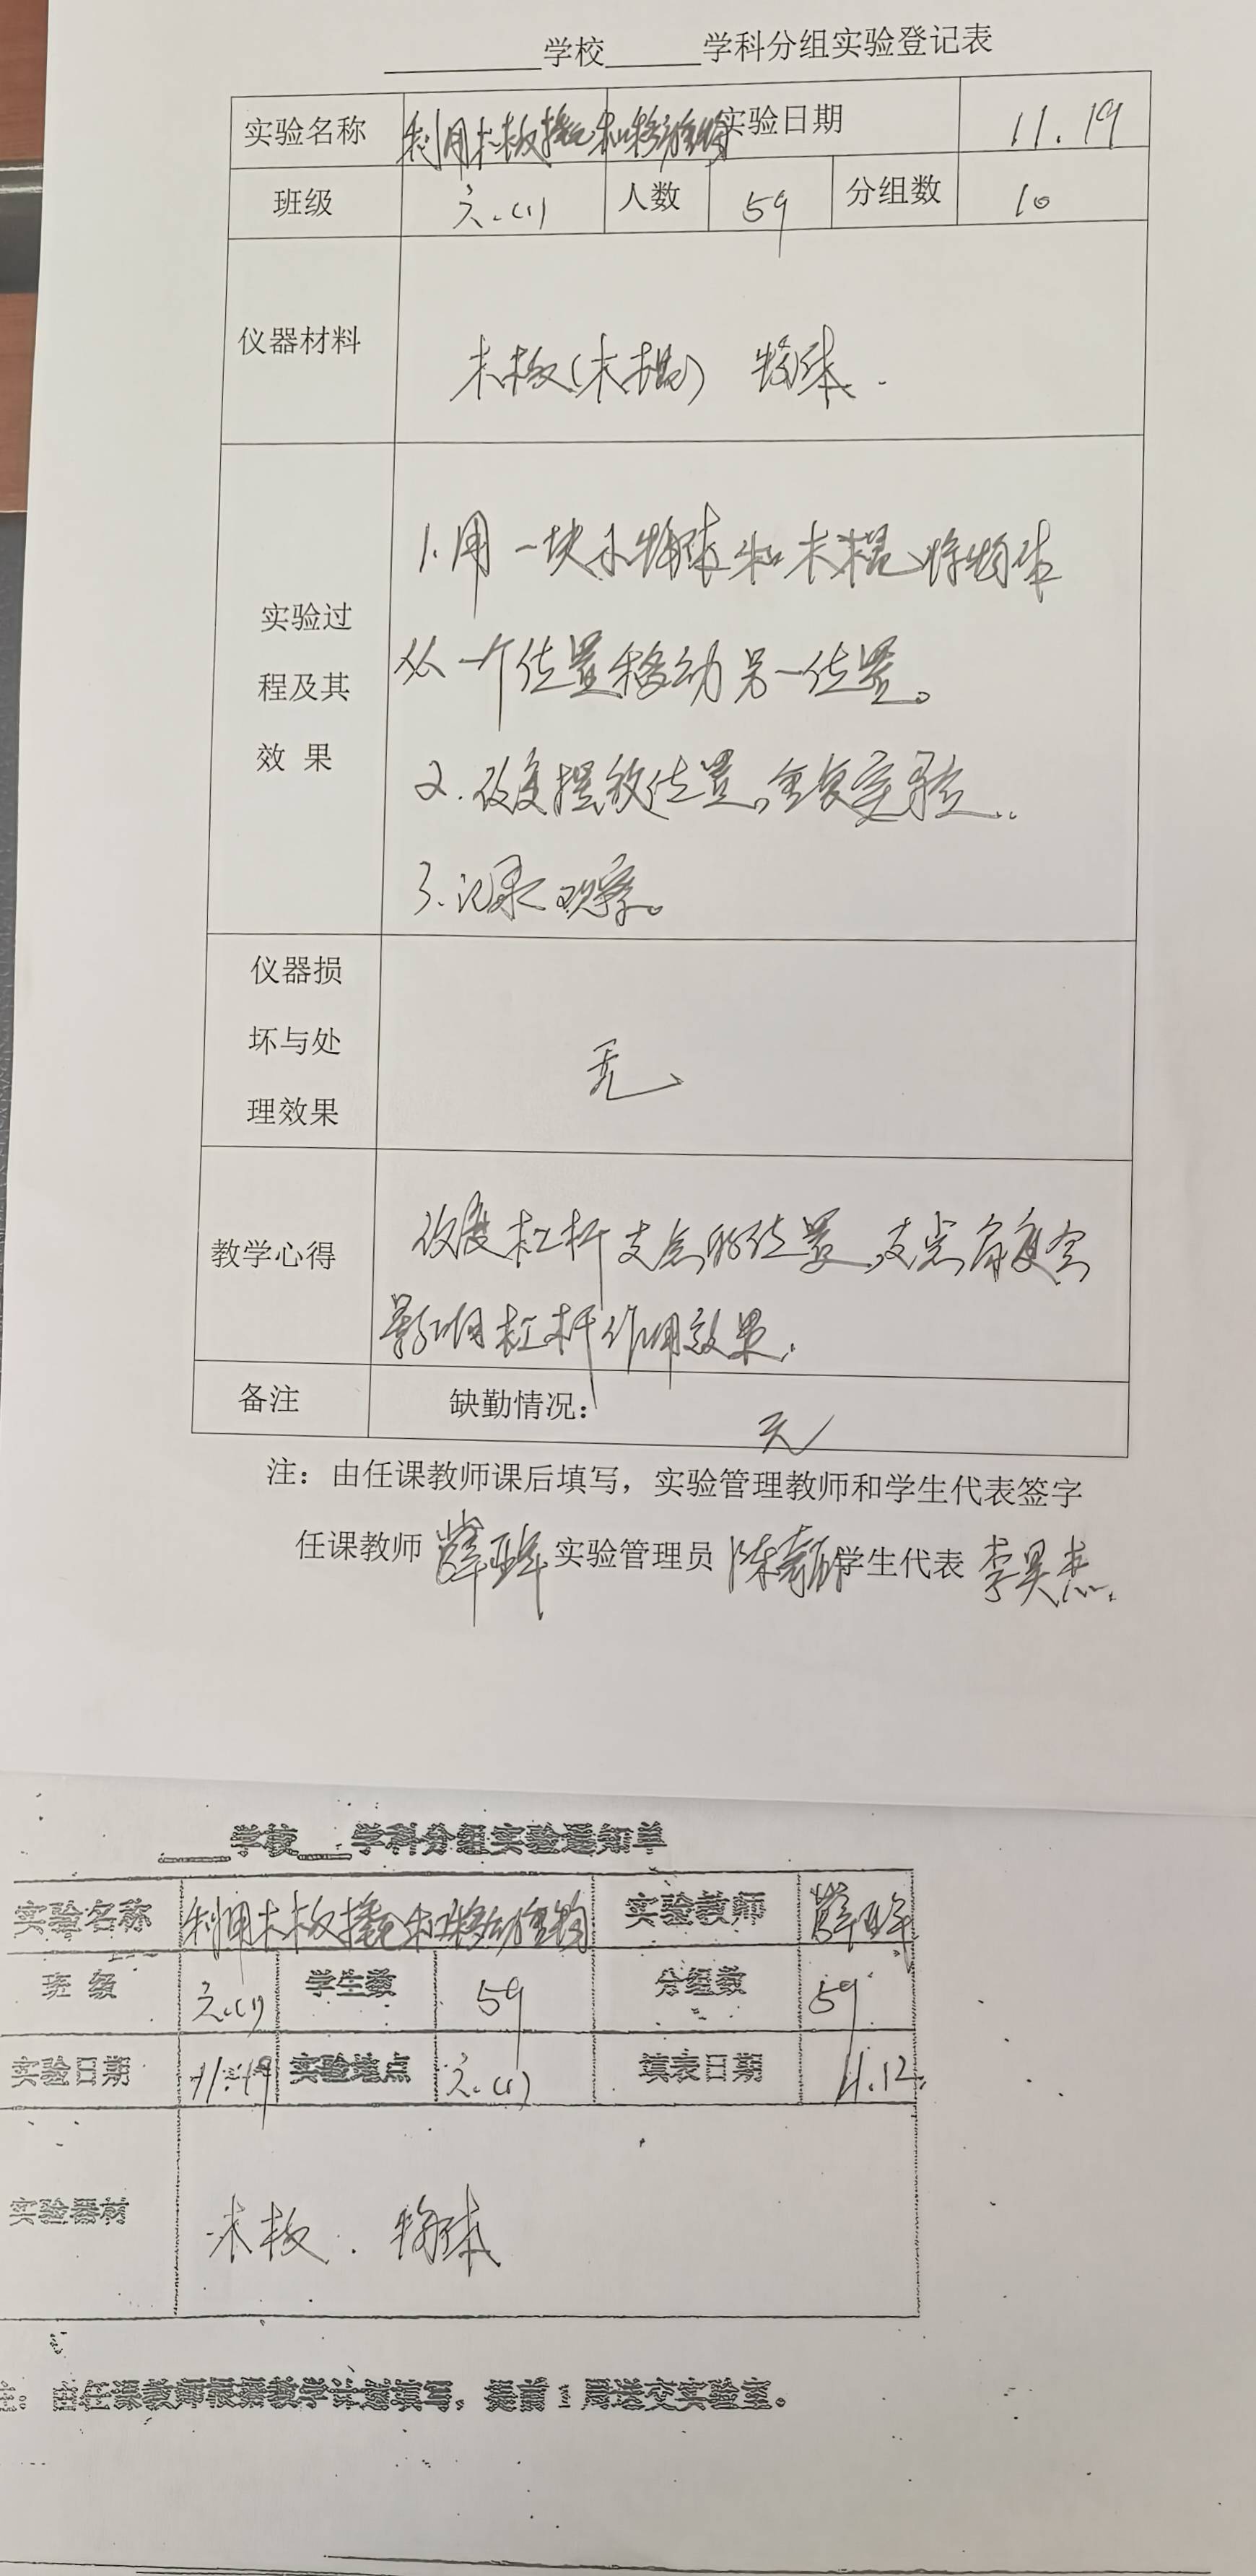 学校 学科分组实验登记表
实验名称 利用木板撬起和移动重物 实验日期 11.19
班级 六.(1) 人数 59 分组数 10
仪器材料 木板(木棍) 物体.
实验过程及其效果
1.用一块小物体和木棍将物体
从一个位置移动另一位置。
2.改变摆放位置,重复实验..
3.记录观察。
仪器损坏与处理效果 无
教学心得 改变杠杆支点的位置,支点角度会
影响杠杆作用效果.
备注 缺勤情况: 无
注:由任课教师课后填写,实验管理教师和学生代表签字
任课教师 薛 实验管理员 陈 学生代表 李昊杰.
学校 学科分组实验通知单
实验名称 利用木板撬起和移动重物 实验教师 薛
班级 六.(1) 学生数 59 分组数 59
实验日期 11.19 实验地点 六.(1) 填表日期 11.12.
实验器材 木板. 物体
注:由任课教师根据教学计划填写,提前1周送交实验室。